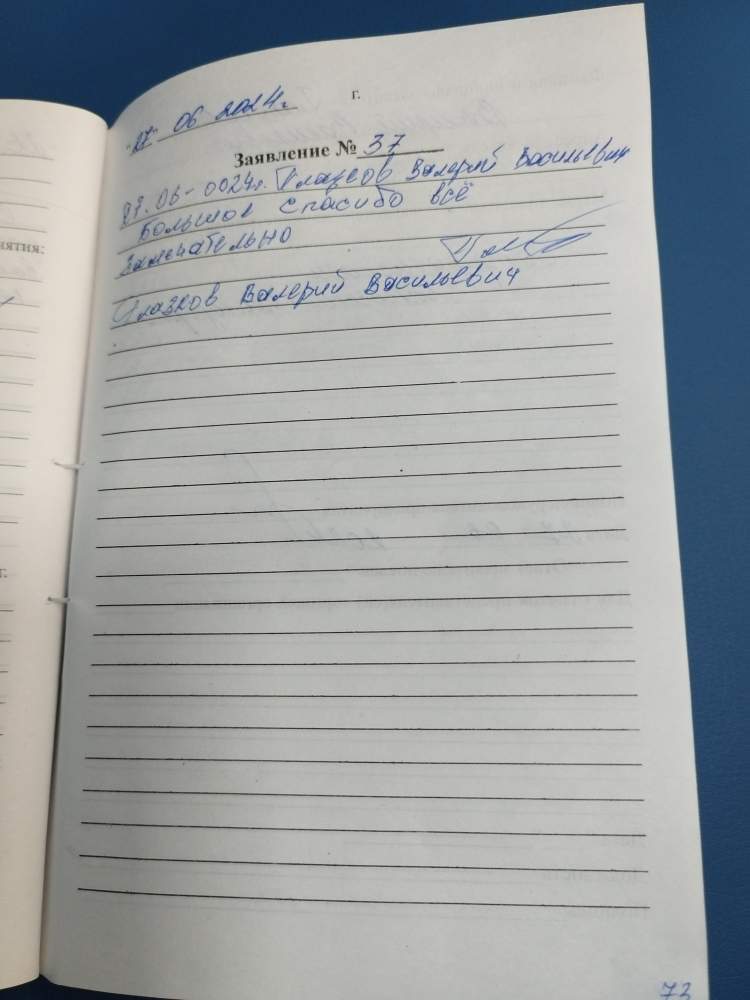 "27" 06 2024г. г.
Заявление № 37
27.06-0024г. Глазков Валерий Васильевич
Большое спасибо всё
Замечательно
Глазков Валерий Васильевич
нятия:
г.
73